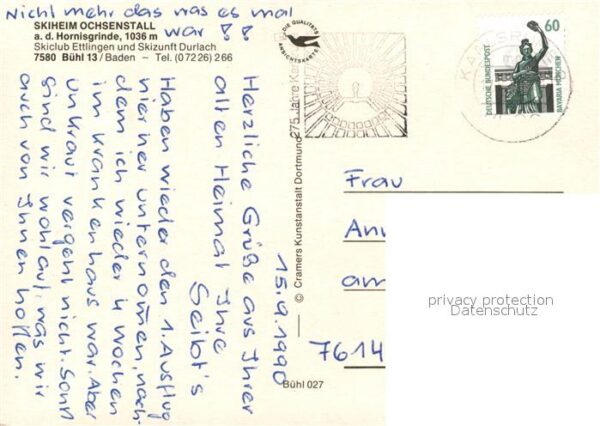 Nicht mehr das was es mal
war !!
SKIHEIM OCHSENSTALL
a. d. Hornisgrinde, 1036 m
Skiclub Ettlingen und Skizunft Durlach
7580 Bühl 13 / Baden – Tel. (07226) 266
15.9.1990
Herzliche Grüße aus Ihrer
alten Heimat Ihre
Seibt's
Haben wieder den 1. Ausflug
hierher unternommen, nach-
dem ich wieder 4 Wochen
im Krankenhaus war. Aber
Unkraut vergeht nicht. Sonst
sind wir wohlauf, was wir
auch von Ihnen hoffen.
DIE QUALITÄTS
ANSICHTSKARTE
275 Jahre
© Cramers Kunstanstalt Dortmund
Bühl 027
60
DEUTSCHE BUNDESPOST
BAVARIA MÜNCHEN
Frau
am
7614
privacy protection
Datenschutz